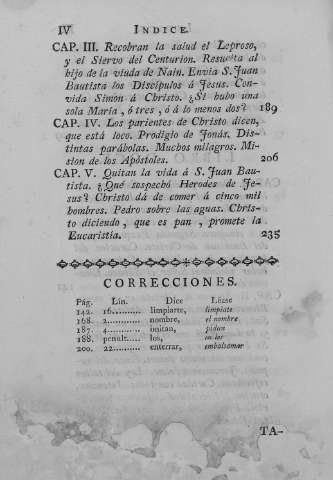 IV INDICE.
CAP. III. Recobran la salud el Leproso,
y el Siervo del Centurion. Resucita al
hijo de la viuda de Nain. Envia S. Juan
Bautista los Discípulos á Jesus. Con-
vida Simon á Christo. ¿Si hubo una
sola María, ó tres, ó á lo menos dos? 189
CAP. IV. Los parientes de Christo dicen,
que está loco. Prodigio de Jonás. Dis-
tintas parábolas. Muchos milagros. Mi-
sion de los Apóstoles. 206
CAP. V. Quitan la vida á S. Juan Bau-
tista. ¿Qué sospechó Herodes de Je-
sus? Christo dá de comer á cinco mil
hombres. Pedro sobre las aguas. Chris-
to diciendo, que es pan, promete la
Eucaristía. 235
CORRECCIONES.
Pág. Lin. Dice Léase
142. 16.......... limpiarte, limpiate
168. 2.......... nombre, el nombre
187. 4.......... imitan, piden
188. penult..... los, en los
200. 22.......... enterrar, embalsamar
TA-